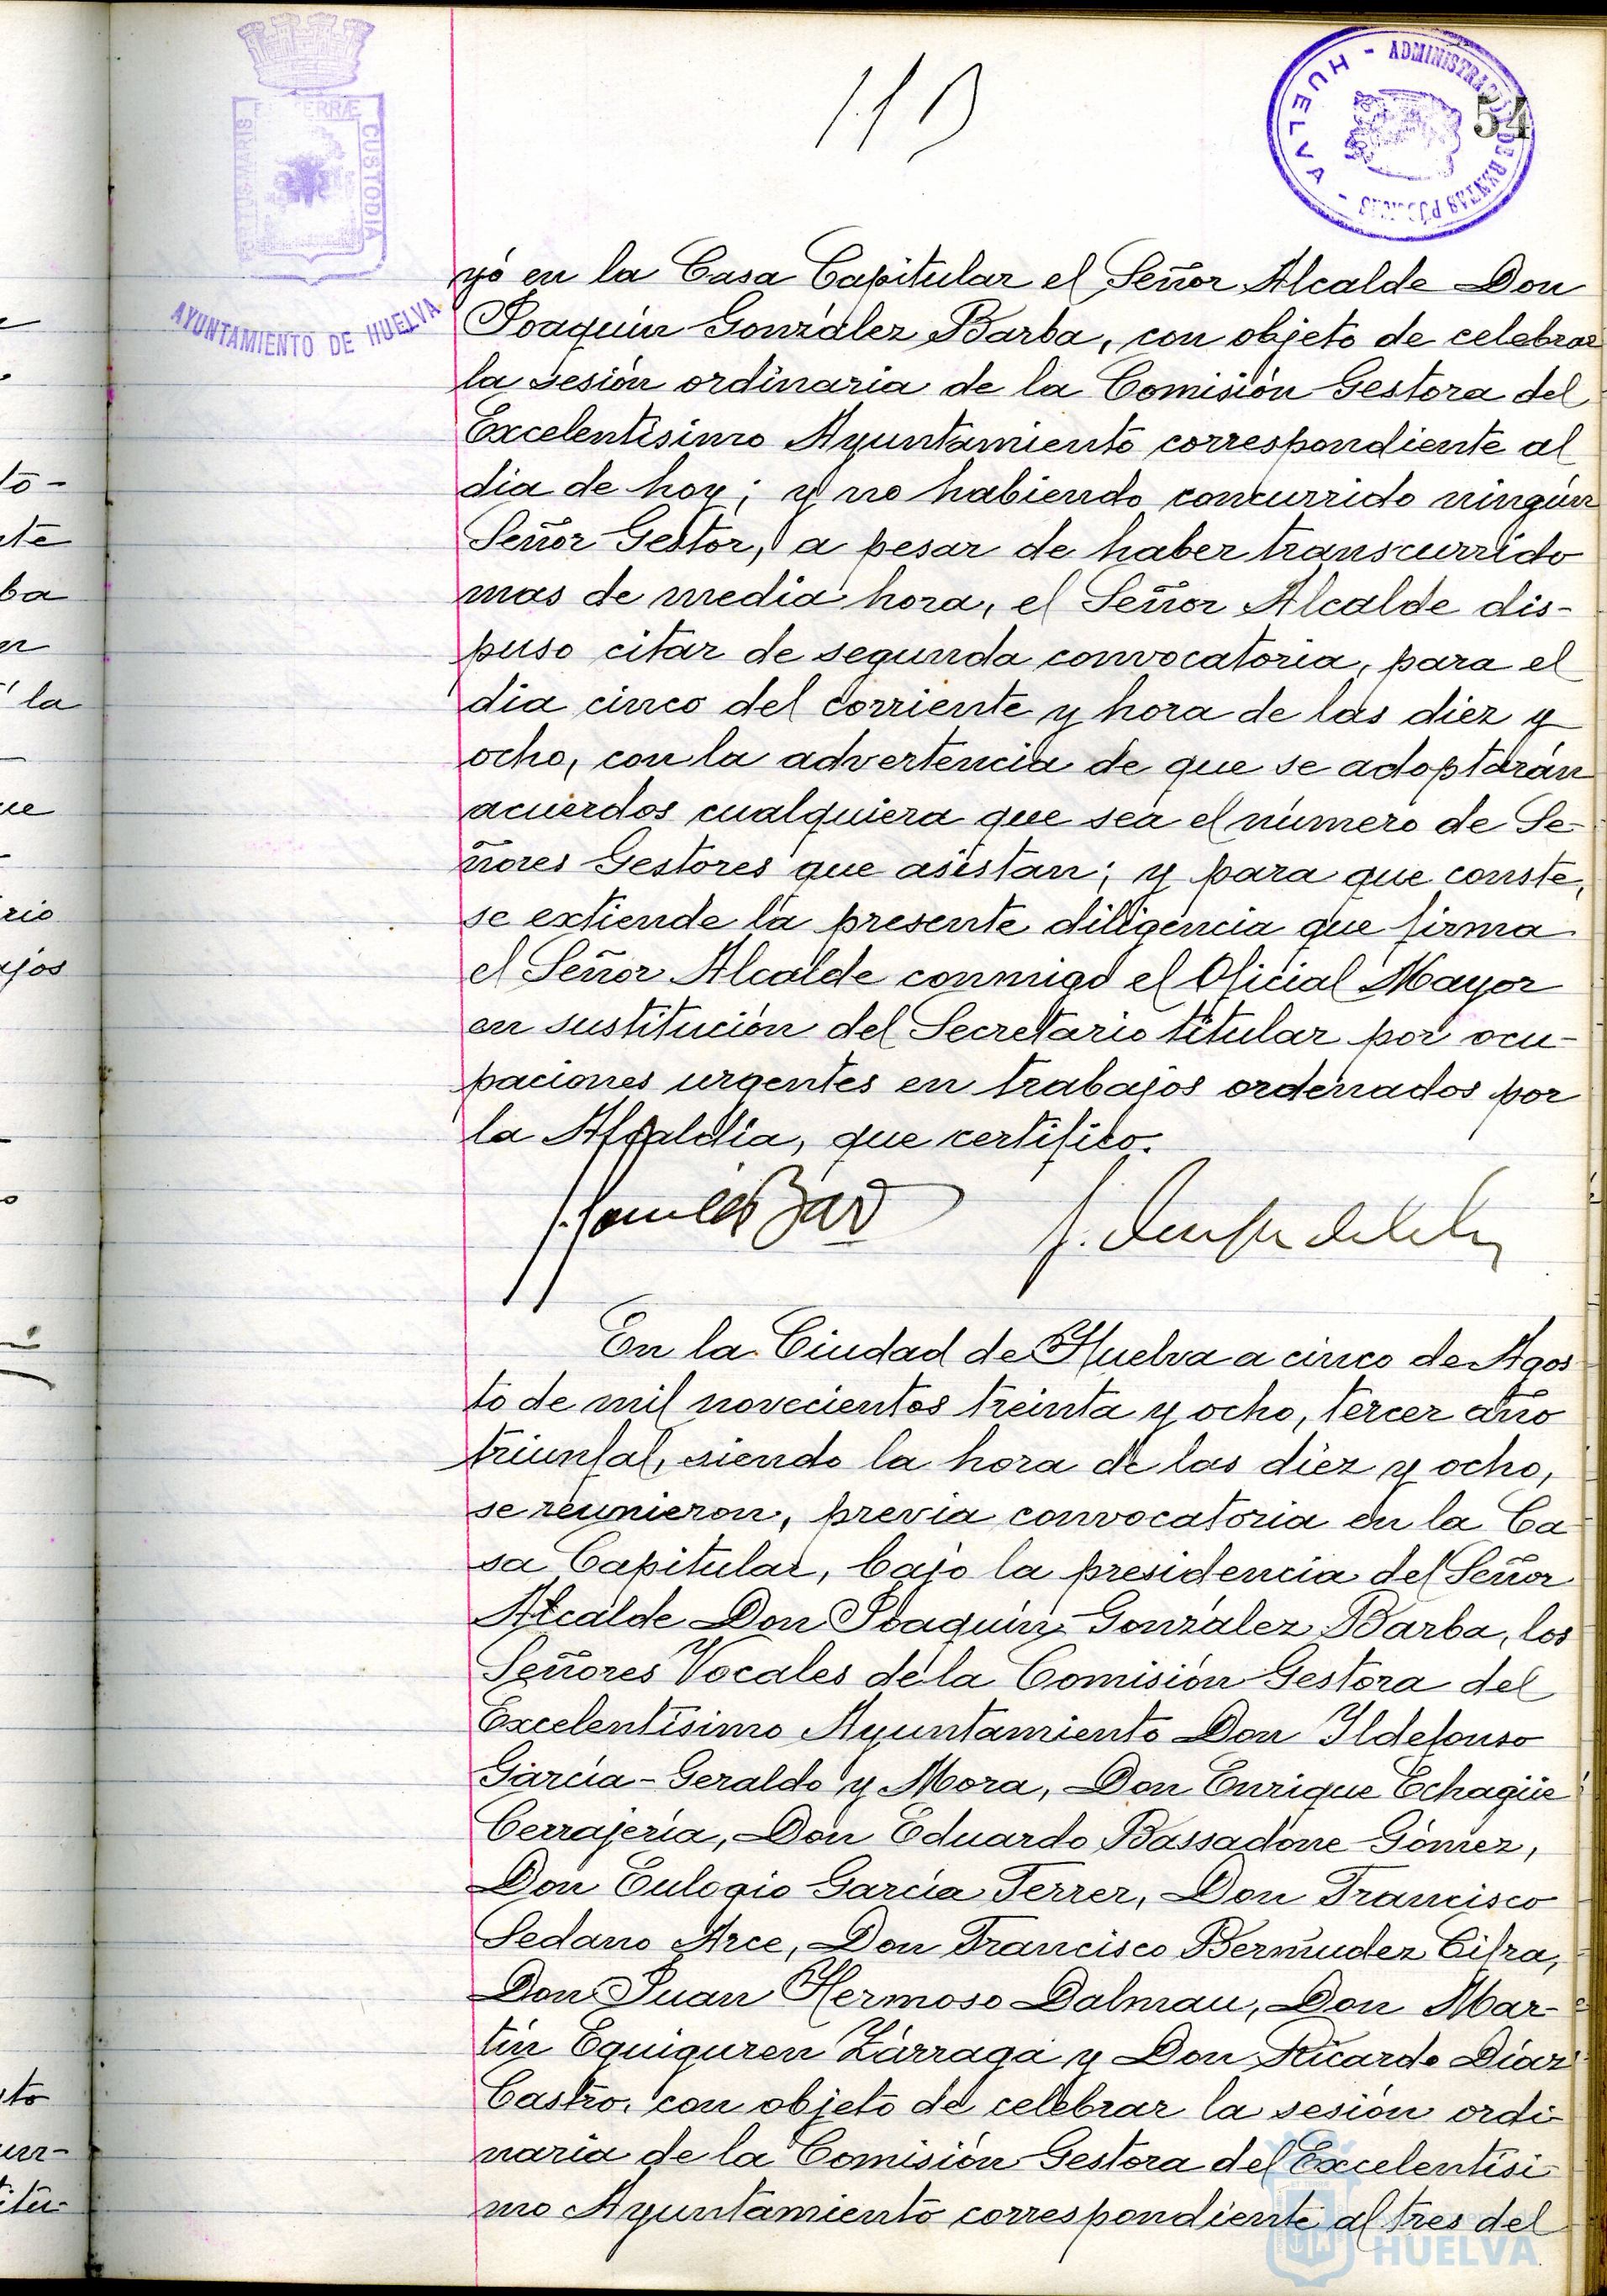 113
ADMINISTRACIÓN DE RENTAS PÚBLICAS - HUELVA -
54
PORTUS MARIS ET TERRÆ CUSTODIA
AYUNTAMIENTO DE HUELVA
yó en la Casa Capitular el Señor Alcalde Don
Joaquín González Barba, con objeto de celebrar
la sesión ordinaria de la Comisión Gestora del
Excelentísimo Ayuntamiento correspondiente al
dia de hoy; y no habiendo concurrido ningún
Señor Gestor, a pesar de haber transcurrido
mas de media hora, el Señor Alcalde dis-
puso citar de segunda convocatoria, para el
dia cinco del corriente y hora de las diez y
ocho, con la advertencia de que se adoptarán
acuerdos cualquiera que sea el número de Se-
ñores Gestores que asistan; y para que conste,
se extiende la presente diligencia que firma
el Señor Alcalde conmigo el Oficial Mayor
en sustitución del Secretario titular por ocu-
paciones urgentes en trabajos ordenados por
la Alcaldía, que certifico.
En la Ciudad de Huelva a cinco de Agos
to de mil novecientos treinta y ocho, tercer año
triunfal, siendo la hora de las diez y ocho,
se reunieron, previa convocatoria en la Ca
sa Capitular, bajo la presidencia del Señor
Alcalde Don Joaquín González Barba, los
Señores Vocales de la Comisión Gestora del
Excelentísimo Ayuntamiento Don Ildefonso
García-Geraldo y Mora, Don Enrique Echagüe
Cerrajería, Don Eduardo Bassadone Gómez,
Don Eulogio García Ferrer, Don Francisco
Sedano Arce, Don Francisco Bermudez Cifra,
Don Juan Hermoso Dalmau, Don Mar-
tín Eguiguren Zárraga y Don Ricardo Díaz
Castro, con objeto de celebrar la sesión ordi-
naria de la Comisión Gestora del Excelentísi-
mo Ayuntamiento correspondiente al tres del
HUELVA